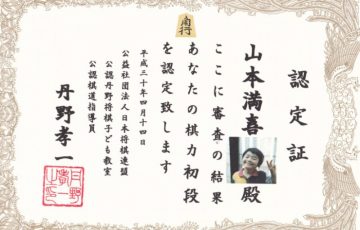 認定証
山本満喜殿
ここに審査の結果
あなたの棋力初段
を認定致します
平成三十年四月十四日
公益社団法人日本将棋連盟
公認丹野将棋子ども教室
公認棋道指導員
丹野孝一